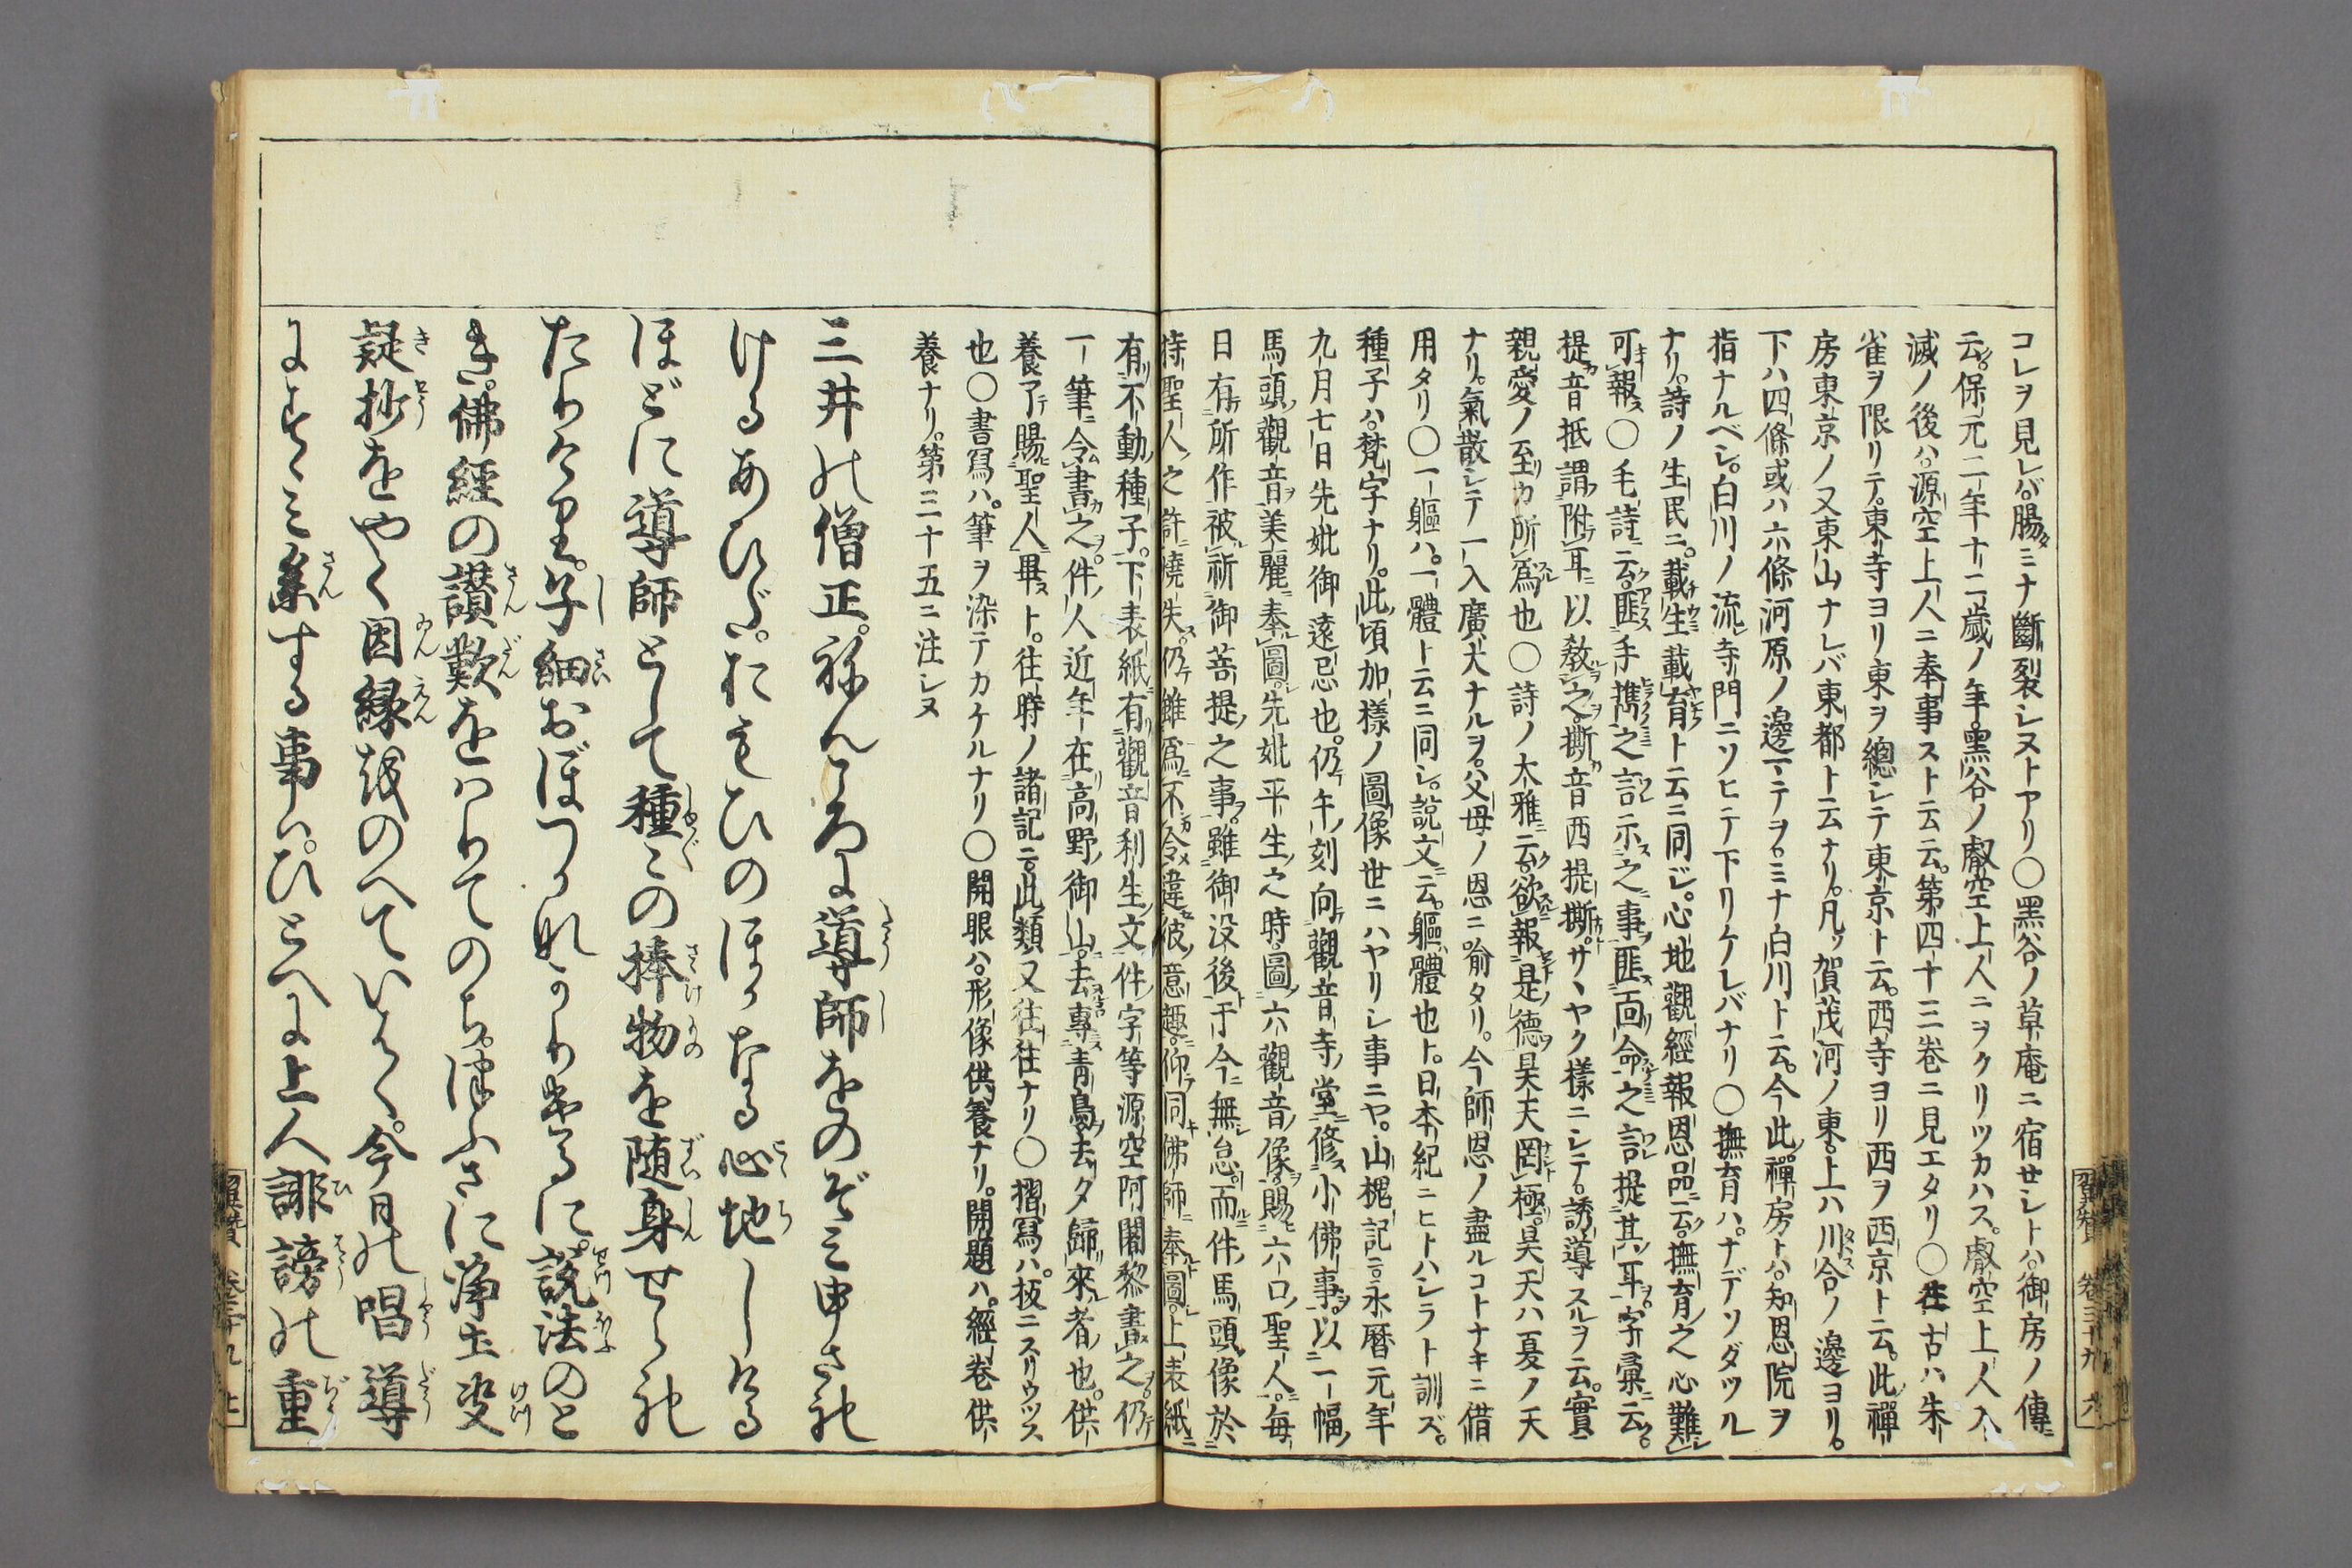 コレヲ見レバ腸ミナ斷裂シヌトアリ○黑谷ノ草庵ニ宿セシトハ御房ノ傳ニ
云。保元二年十二歲ノ年。黑谷ノ叡空上人ニヲクリツカハス。叡空上人入
滅ノ後ハ。源空上人ニ奉事スト云云。第四十三卷ニ見エタリ○往古ハ朱
雀ヲ限リテ。東寺ヨリ東ヲ總シテ東京ト云。西寺ヨリ西ヲ西京ト云。此禪
房東京ノ又東山ナレバ東都ト云ナリ。凡ソ賀茂河ノ東。上ハ川合ノ邊ヨリ。
下ハ四條或ハ六條河原ノ邊マテヲ。ミナ白川ト云。今此禪房トハ。知恩院ヲ
指ナルベシ。白川ノ流寺門ニソヒテ下リケレバナリ○撫育ハ。ナデソダツル
ナリ。詩ノ生民ニ。載生載育ト云ニ同ジ。心地觀經報恩品ニ云。撫育之心難
可報○毛詩云。匪手攜之言示之事。匪面命之言提其耳。字彙云。
提音抵。謂附耳以敎之。撕音西。提撕。サヽヤク樣ニシテ。誘導スルヲ云。實
親愛ノ至カ所爲也○詩ノ大雅云。欲報是德。昊天罔極。昊天ハ夏ノ天
ナリ。氣散シテ一入廣大ナルヲ。父母ノ恩ニ喻タリ。今師恩ノ盡ルコトナキニ借
用タリ○一軀ハ。一體ト云ニ同シ。說文云。軀體也ト。日本紀ニヒトハシラト訓ズ。
種子ハ。梵字ナリ。此頃加樣ノ圖像世ニハヤリシ事ニヤ。山槐記云永曆元年
九月七日先妣御遠忌也。仍午刻向觀音寺堂修小佛事。以一幅
馬頭觀音美麗奉圖。先妣平生之時。圖六觀音像。賜六口聖人。每
日有所作被祈御菩提之事。雖御没後于今無怠。而件馬頭像於
持聖人之許燒失。仍雖爲不令違彼意趣。仰同佛師奉圖。上表紙
有不動種子。下表紙有觀音利生文。件字等源空阿闍黎書之。仍
一筆令書之。件人近年在高野御山。去專靑鳥去夕歸來者也。供
養了賜聖人畢ト。往時ノ諸記ニ此類又往往ナリ○摺寫ハ。板ニスリウツス
也○書寫ハ。筆ヲ染テカケルナリ○開眼ハ。形像供養ナリ。開題ハ。經卷供
養ナリ。第三十五ニ注シヌ
三井の僧正。ねんころに導師をのぞミ申され
けるあひだ。おもひのほかなる心地しける
ほどに導師として種々の捧物を随身せられ
たりけり。子細おぼつかなかりけるに。說法のと
き。佛經の讃歎をハりてのち。つぶさに淨土决
疑抄をやく因緣をのべていはく。今日の唱導
にすゝミ參する事ハ。ひとへに上人誹謗の重
翼贊 卷三十九 九
翼贊 卷三十九 十